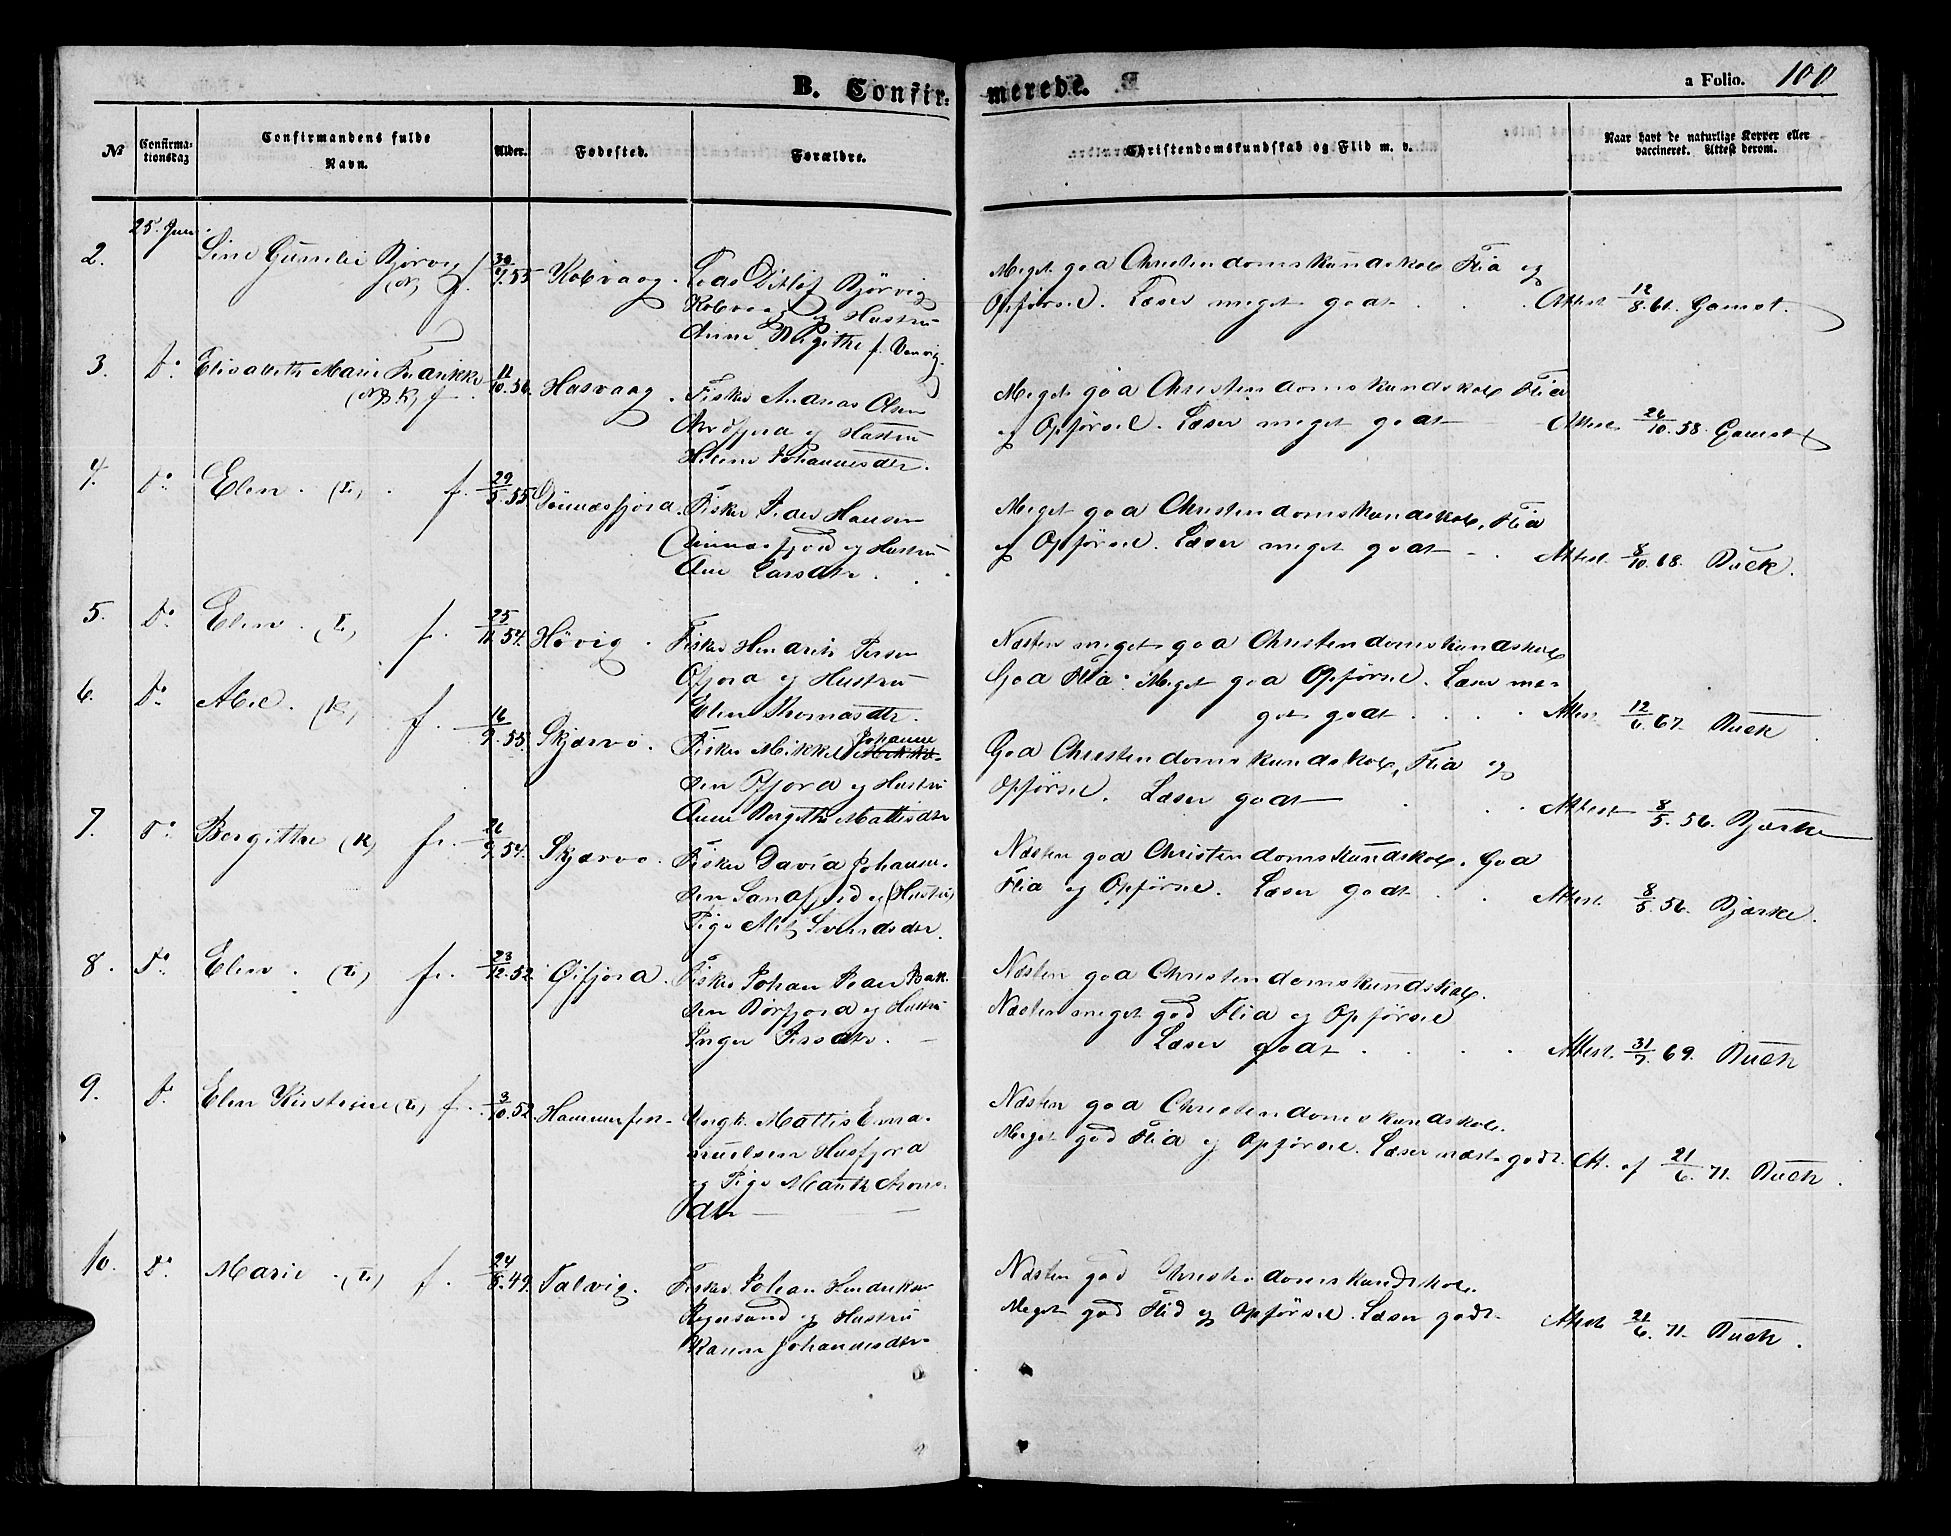 B. Confirmerede.
a Folio. 100
№
Confirmationsdag
Confirmandens fulde Navn.
Alder.
Fødested.
Forældre.
Christendomskundskab og Flid m. v.
Naar havt de naturlige Kopper eller vaccineret. Attest derom.
2. 25. Juni Line Bjørvig (N) f. 30/7.55 Kobvaag.
Ditlef Bjørvig
Kobvaag og Hustru
Anne Birgithe f. Xenvig
Meget god Christendomskundskab Flid og
Opførsel. Læser meget godt. Attest 12/8.61. Gamst.
3. Do. Elisabeth Marie Fredrikke f. 11/10.56. Hasvaag.
Fisker Andreas Olsen
og Hustru
Helene Johannesdtr.
Meget god Christendomskundskab Flid
og Opførsel. Læser meget godt Attest 26/10.58. Gamst
4. Do. Elen. (L) f. 29/5.55. Dönnesfjord.
Fisker Peder Hansen
Dönnesfjord og Hustru
Ane Larsdtr.
Meget god Christendomskundskab, Flid
og Opførsel. Læser meget godt Attest. 8/10.68. Buck.
5. Do. Elen. (L) f. 25/11.54. Høvig.
Fisker Hendrik Persen
Ofjord og Hustru
Elen Thomasdtr.
Næsten meget god Christendomskundskab
God Flid. Meget god Opførsel. Læser me-
get godt Attest 12/6.67. Buck
6. Do. Abel. (K) f. 16/9.55. Skjervø.
Fisker Mikkel Johanne-
sen Ofjord og Hustru
Anne Bergithe Mattisdtr
God Christendomskundskab, Flid og
Opførsel. Læser godt Attest 8/5.56. Bjerke
7. Do. Bergitte (K) f. 26/9.54. Skjervø.
Fisker David Johanne-
sen Sandfjord og (Hustru)
Pige Alet Svendsdtr.
Næsten god Christendomskundskab. God
Flid og Opførsel. Læser godt Attest. 8/5.56. Bjerke.
8. Do. Elen. (L) f. 23/12.52. Øifjord.
Fisker Johan Peder Bak-
ken Børfjord og Hustru
Inger Persdtr.
Næsten god Christendomskundskab.
Næsten meget god Flid og Opførsel
Læser godt Attest. 31/7.69. Buck
9. Do. Elen Kirstine (L) f. 3/10.52. Hammerfest
Ungk. Mattis Ema-
nuelsen Husfjord
og Pige Marith Arons-
dtr
Næsten god Christendomskundskab.
Meget god Flid og Opførsel. Læser næst. godt. Att. af 21/6.71. Buck.
10. Do. Marie (L) f. 24/8.49. Talvig.
Fisker Johan Hendriksen
og Hustru
Karen Johannesdtr.
Næsten god Christendomskundskab.
Meget god Flid og Opførsel. Læser godt. Attest 21/6.71. Buck.